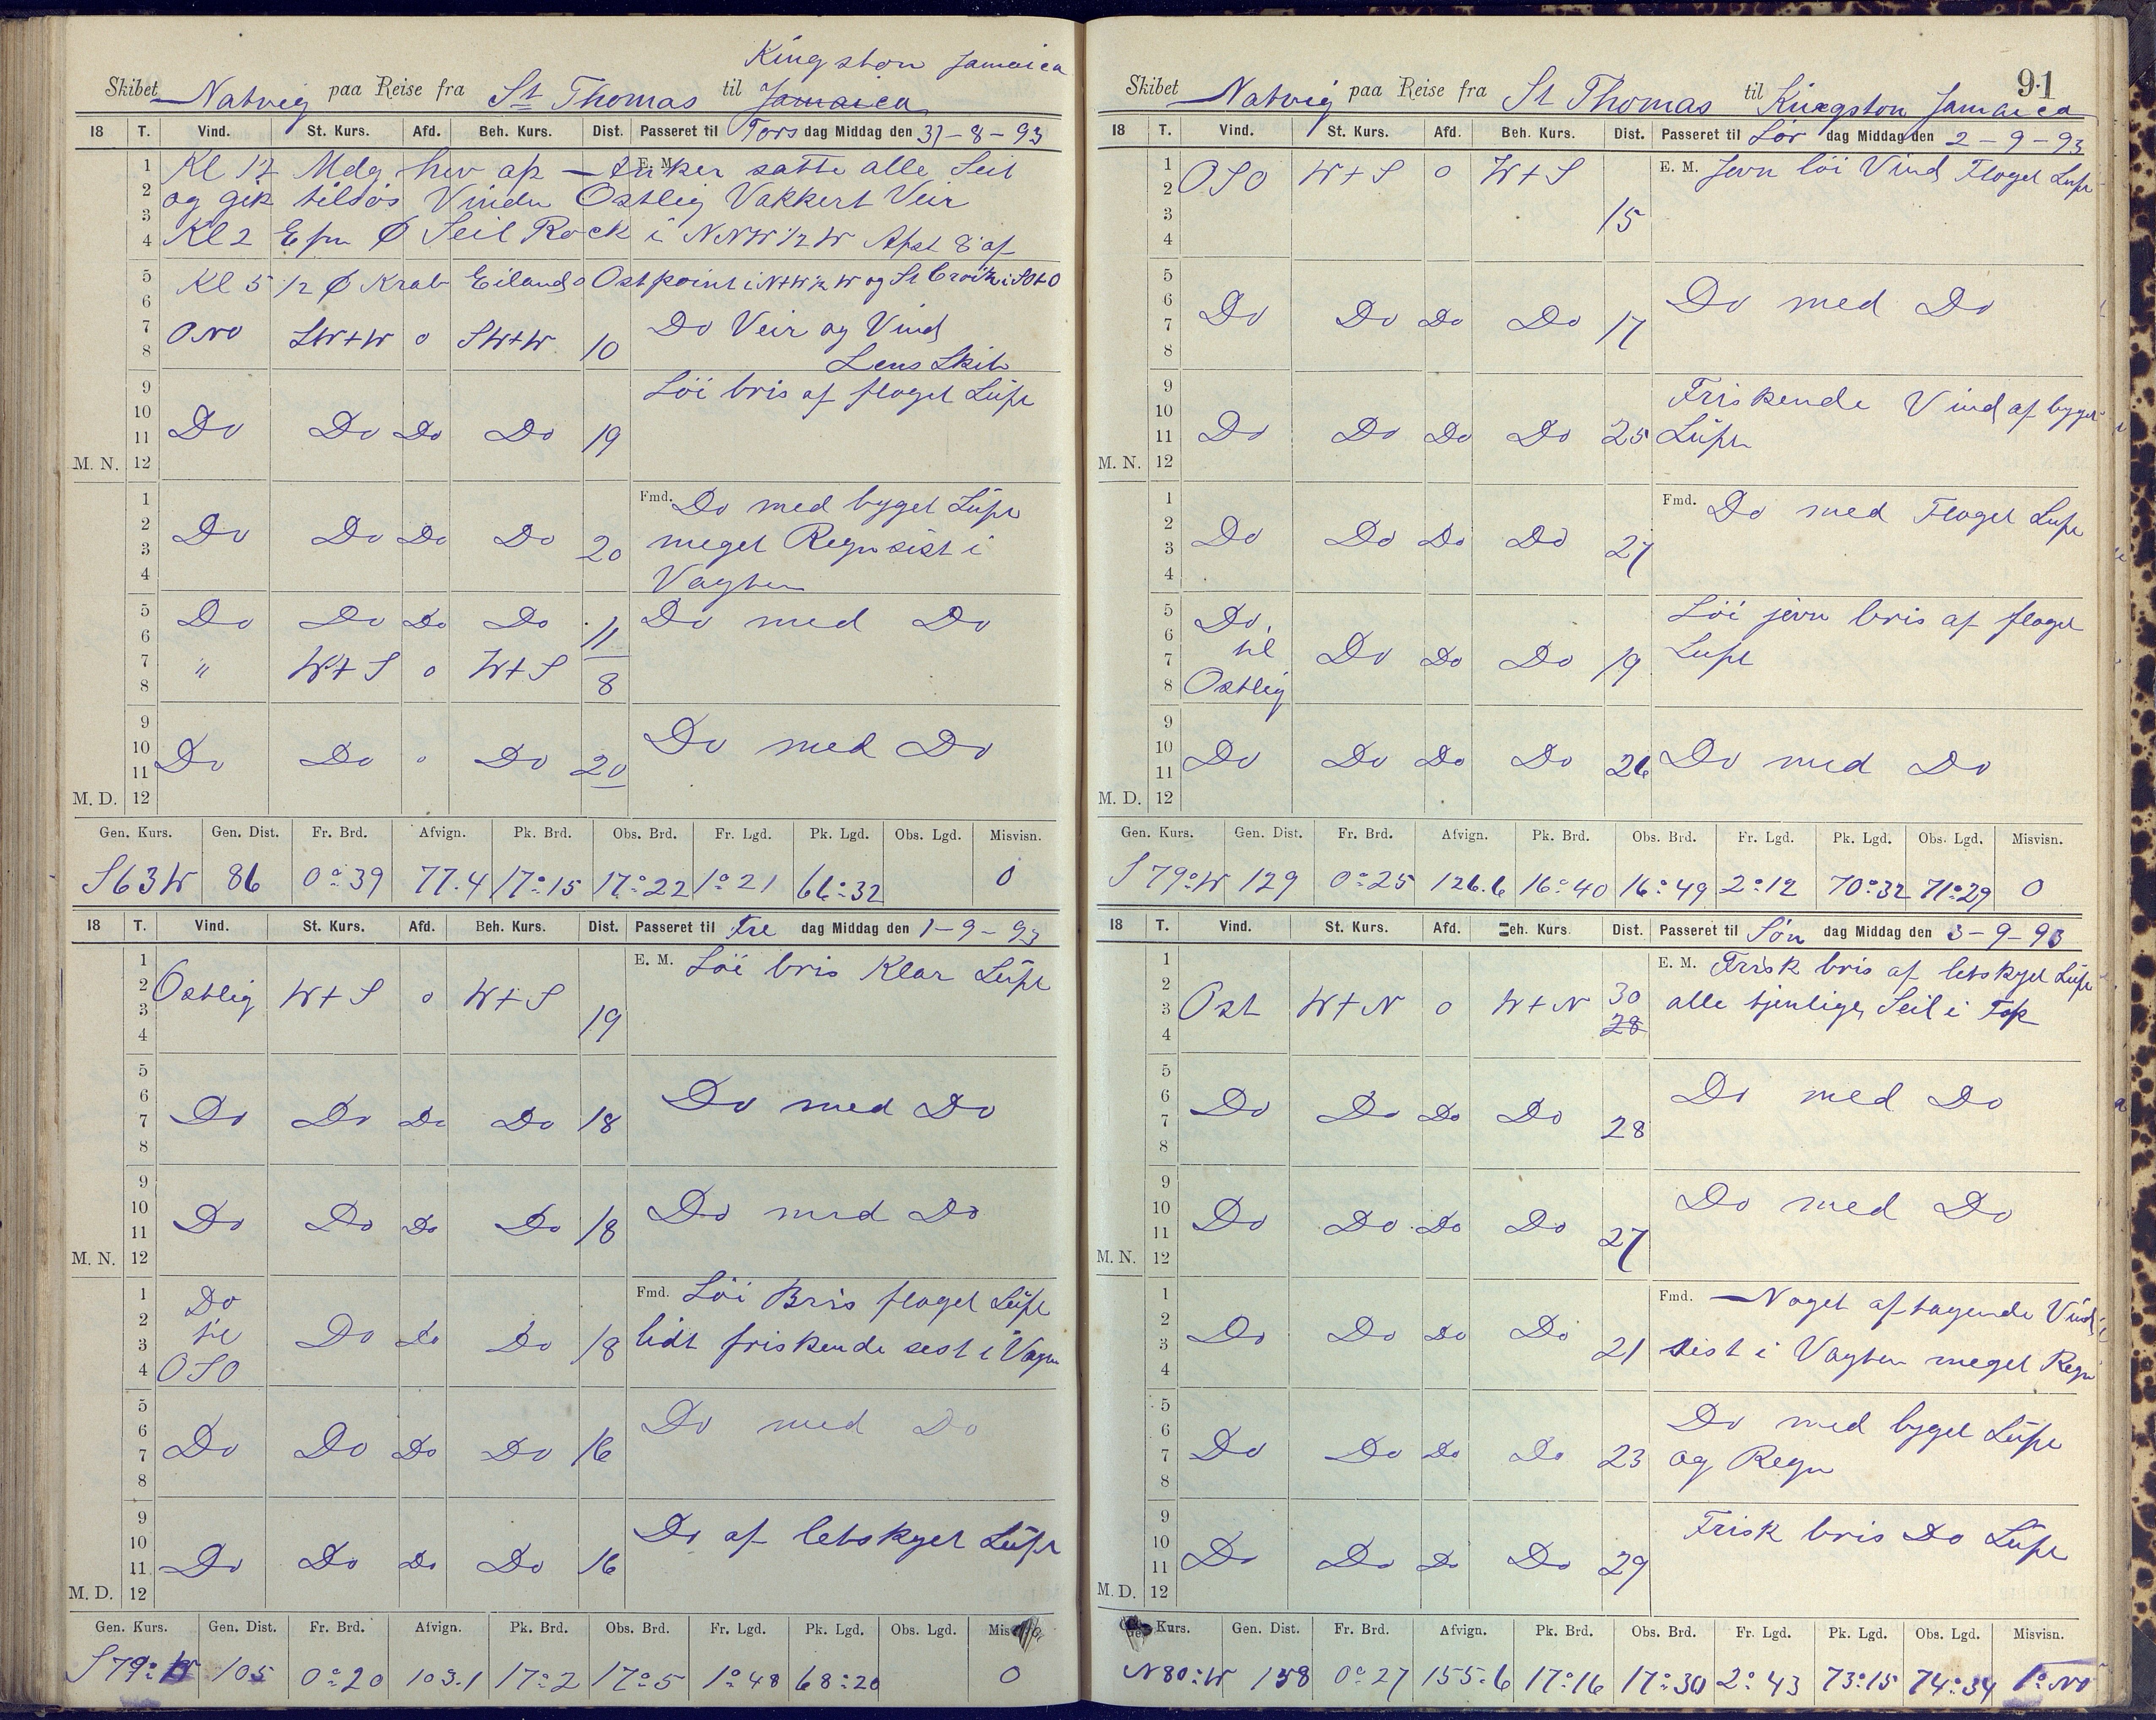 Kingston Jamaica
Skibet Natvig paa Reise fra St Thomas til Jamaica
18 T. Vind. St. Kurs. Afd. Beh. Kurs. Dist. Passeret til Tors dag Middag den 31-8-93
1 Kl 12 Mdg hev ap E. M. Anker satte alle Seil
2 og gik tilsös Vinden Ostlig Vakkert Veir
3
4 Kl 2 Epm Ø Seil Rock i NNW 1/2 W Afst 8' af
5 Kl 5 1/2 Ø Krab Eilands Ostpoint i N+W 1/2 W og St Croix i SO+O
6
7 ONO SW+W 0 SW+W 10 Do Veir og Vind
8 Lens Skib
9 Löi bris af floget Luft
10
11 Do Do Do Do 19
M. N. 12
1 Fmd. Do med byget Luft
2 Do Do Do Do 20 meget Regn sist i
3
4 Vagten
5 Do Do Do Do 11 Do med Do
6
7 " W+S 0 W+S 8
8
9 Do med Do
10
11 Do Do 0 Do 20
M. D. 12
Gen. Kurs. Gen. Dist. Fr. Brd. Afvign. Pk. Brd. Obs. Brd. Fr. Lgd. Pk. Lgd. Obs. Lgd. Misvisn.
S 63 W 86 0°39 77.4 17°15 17°22 1°21 66°32 0
18 T. Vind. St. Kurs. Afd. Beh. Kurs. Dist. Passeret til Fre dag Middag den 1-9-93
1 E. M. Löi bris Klar Luft
2 Ostlig W+S 0 W+S 19
3
4
5
6 Do med Do
7 Do Do Do Do 18
8
9
10 Do med Do
11 Do Do Do Do 18
M. N. 12
1 Do Fmd. Löi Bris floget Luft
2 til Do Do Do 18 lidt friskende sest i Vagn
3
4 OSO
5 Do med Do
6
7 Do Do Do Do 16
8
9 Do af letskyet Luft
10
11 Do Do Do Do 16
M. D. 12
Gen. Kurs. Gen. Dist. Fr. Brd. Afvign. Pk. Brd. Obs. Brd. Fr. Lgd. Pk. Lgd. Obs. Lgd. Mis
S 79° W 105 0°20 103.1 17°2 17°5 1°48 68°20 0
91
Skibet Natvig paa Reise fra St Thomas til Kingston Jamaica
18 T. Vind. St. Kurs. Afd. Beh. Kurs. Dist. Passeret til Lör dag Middag den 2-9-93
1 E. M. Jevn löi Vind Floget Luft
2 OSO W+S 0 W+S 15
3
4
5
6 Do med Do
7 Do Do Do Do 17
8
9 Friskende Vind af byget
10
11 Do Do Do Do 25 Luft
M. N. 12
1 Fmd. Do med Floget Luft
2
3 Do Do Do Do 27
4
5 Do, Löi jevn bris af floget
6 til
7 Do Do Do 19 Luft
8 Ostlig
9
10
11 Do Do Do Do 26 Do med Do
M. D. 12
Gen. Kurs. Gen. Dist. Fr. Brd. Afvign. Pk. Brd. Obs. Brd. Fr. Lgd. Pk. Lgd. Obs. Lgd. Misvisn.
S 79° W 129 0°25 126.6 16°40 16°49 2°12 70°32 71°29 0
18 T. Vind. St. Kurs. Afd. Beh. Kurs. Dist. Passeret til Sön dag Middag den 3-9-93
1 E. M. Frisk bris af letskyet Luft
2
3 Ost W+N 0 W+N 30 alle tjenlige Seil i Top
4 28
5
6 Do med Do
7 Do Do Do Do 28
8
9
10 Do med Do
11 Do Do Do Do 27
M. N. 12
1 Fmd. Noget aftagende Vind
2
3 Do Do Do Do 21 sist i Vagten meget Regn
4
5
6 Do med byget Luft
7 Do Do Do Do 23 og Regn
8
9 Frisk bris Do Luft
10
11 Do Do Do Do 29
M. D. 12
Kurs. Gen. Dist. Fr. Brd. Afvign. Pk. Brd. Obs. Brd. Fr. Lgd. Pk. Lgd. Obs. Lgd. Misvisn.
N 80° W 158 0°27 155.6 17°16 17°30 2°43 73°15 74°34 1° NO